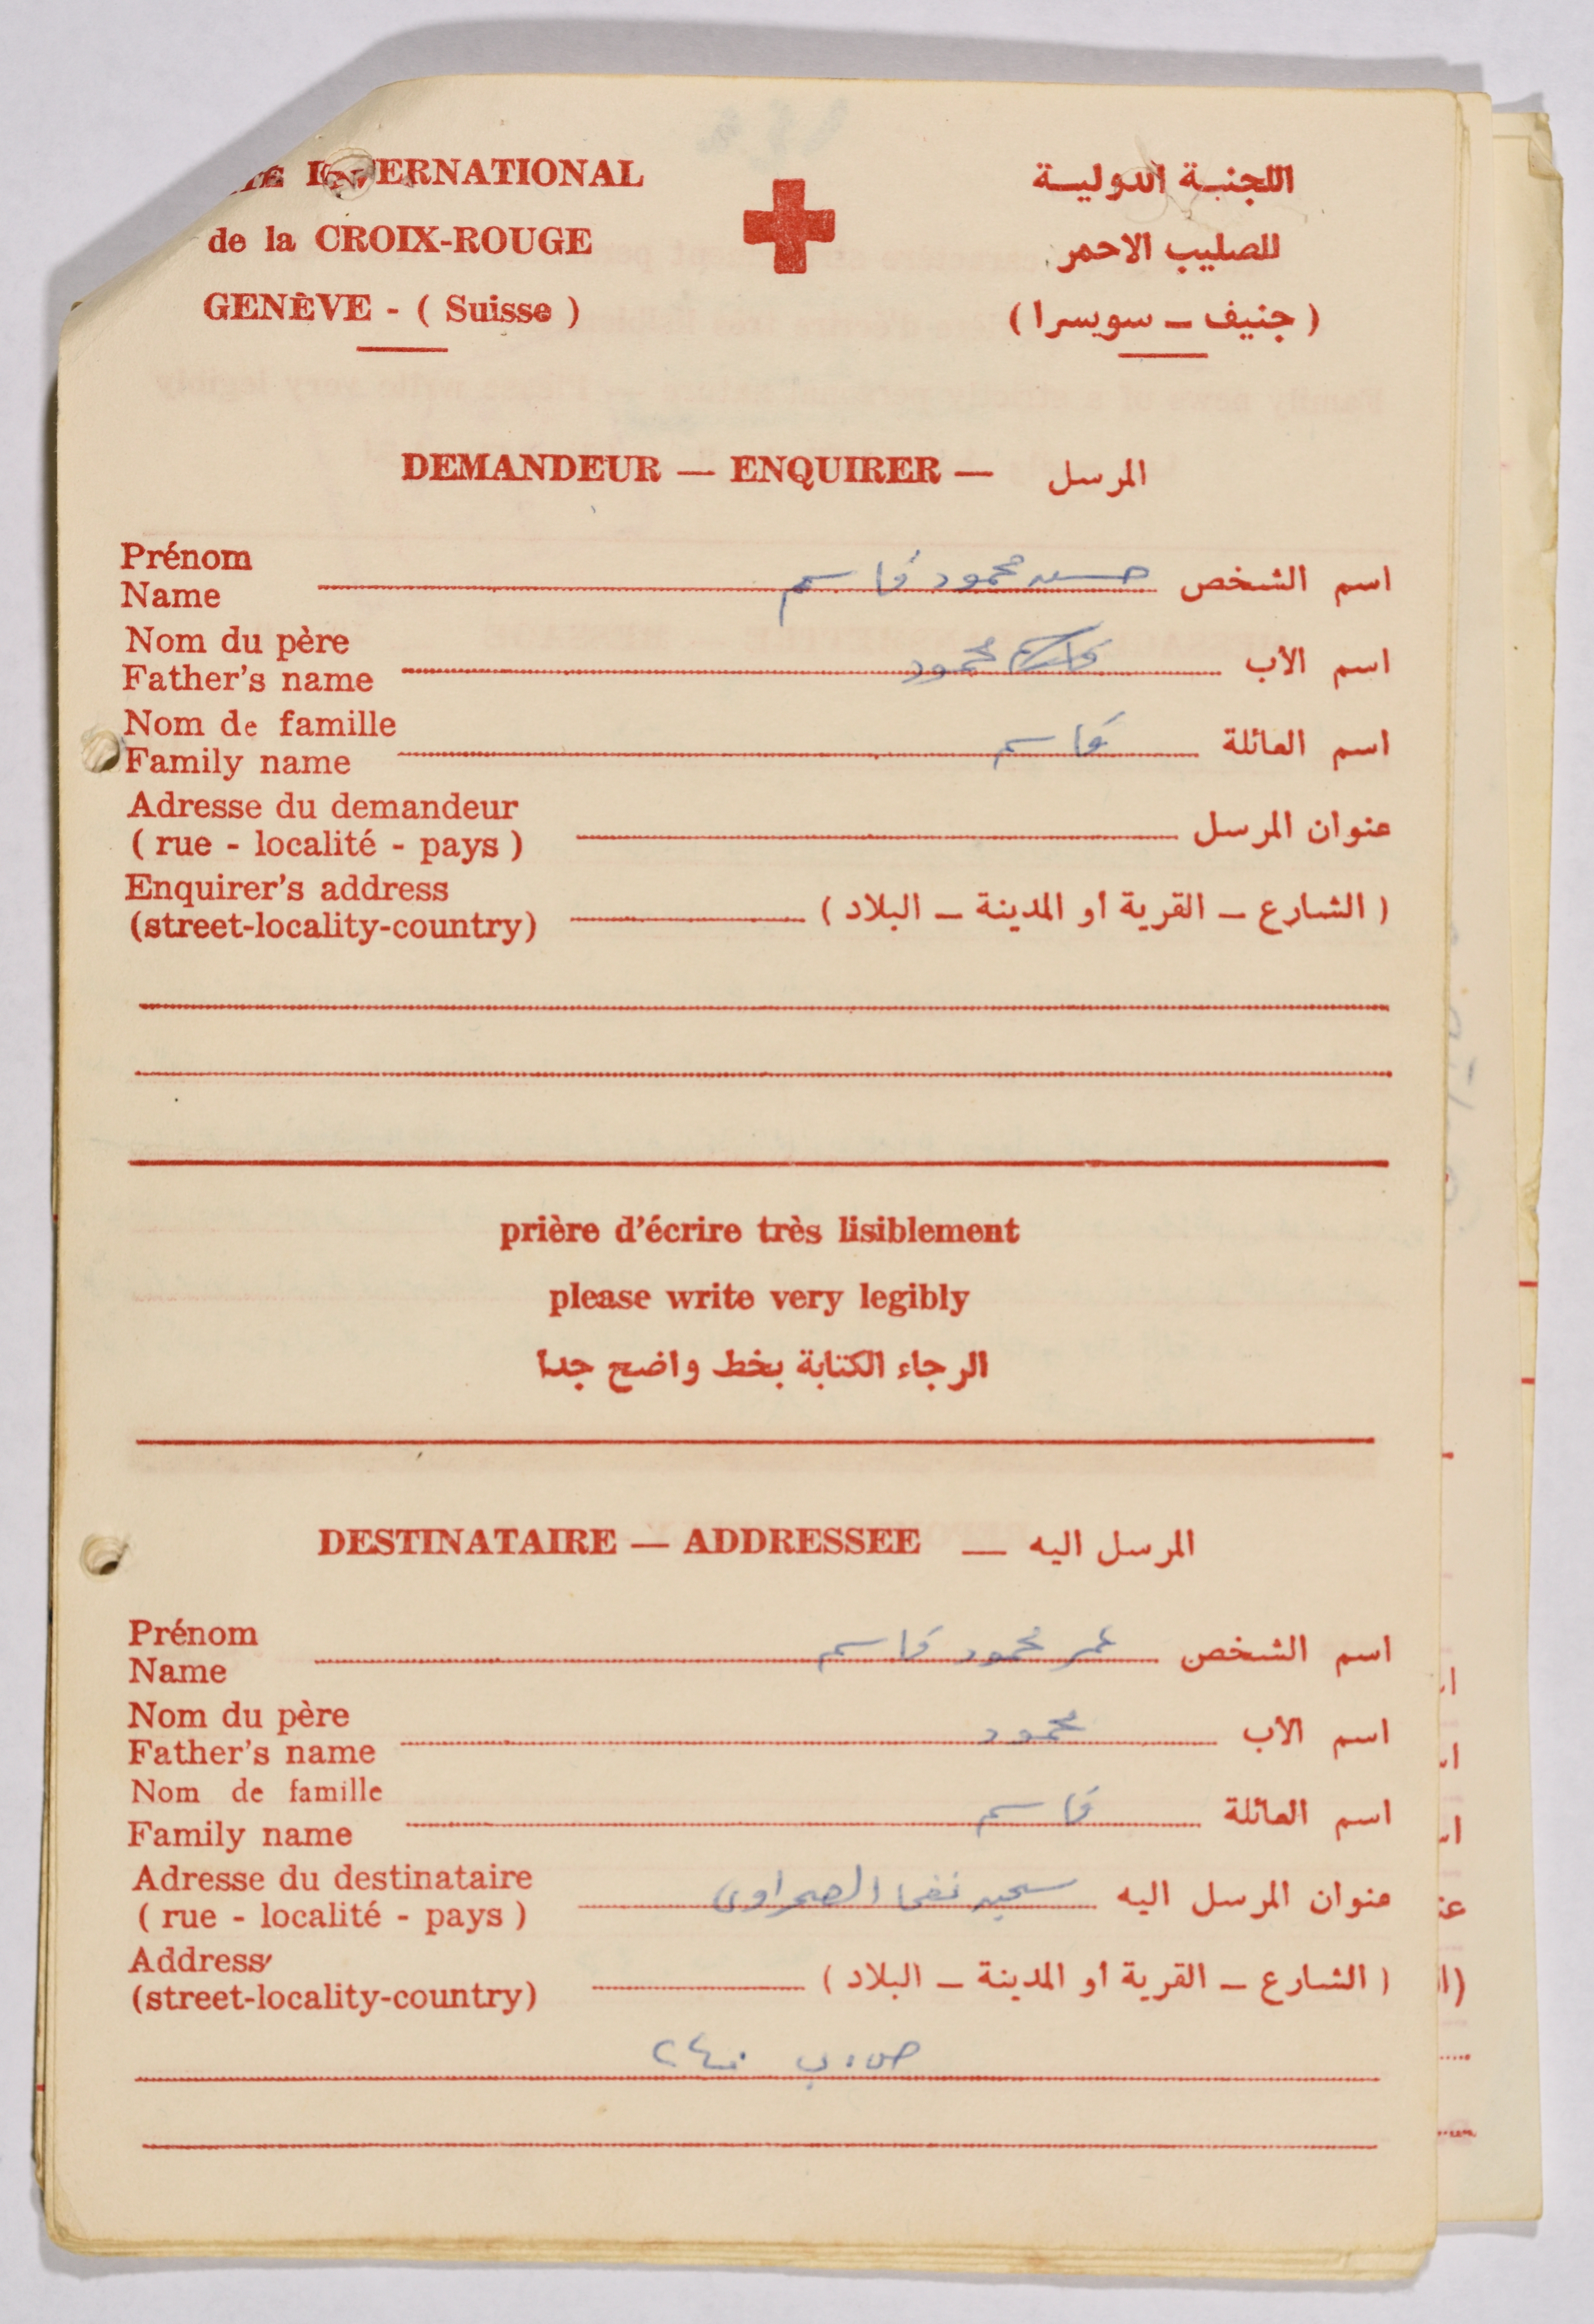 INTERNATIONAL
de la CROIX-ROUGE
GENÈVE - ( Suisse )
اللجنة الدولية
للصليب الاحمر
( جنيف ــ سويسرا )
DEMANDEUR — ENQUIRER — المرسل
Prénom
Name
اسم الشخص حسين محمود قاسم
Nom du père
Father's name
اسم الأب محمود
Nom de famille
Family name
اسم العائلة قاسم
Adresse du demandeur
( rue - localité - pays )
عنوان المرسل
Enquirer's address
(street-locality-country)
( الشارع ــ القرية أو المدينة ــ البلاد )
prière d'écrire très lisiblement
please write very legibly
الرجاء الكتابة بخط واضح جدا
DESTINATAIRE — ADDRESSEE — المرسل اليه
Prénom
Name
اسم الشخص عمر محمود قاسم
Nom du père
Father's name
اسم الأب محمود
Nom de famille
Family name
اسم العائلة قاسم
Adresse du destinataire
( rue - localité - pays )
عنوان المرسل اليه سجن نفحا الصحراوي
Address
(street-locality-country)
( الشارع ــ القرية أو المدينة ــ البلاد )
ص.ب ٢٤٠